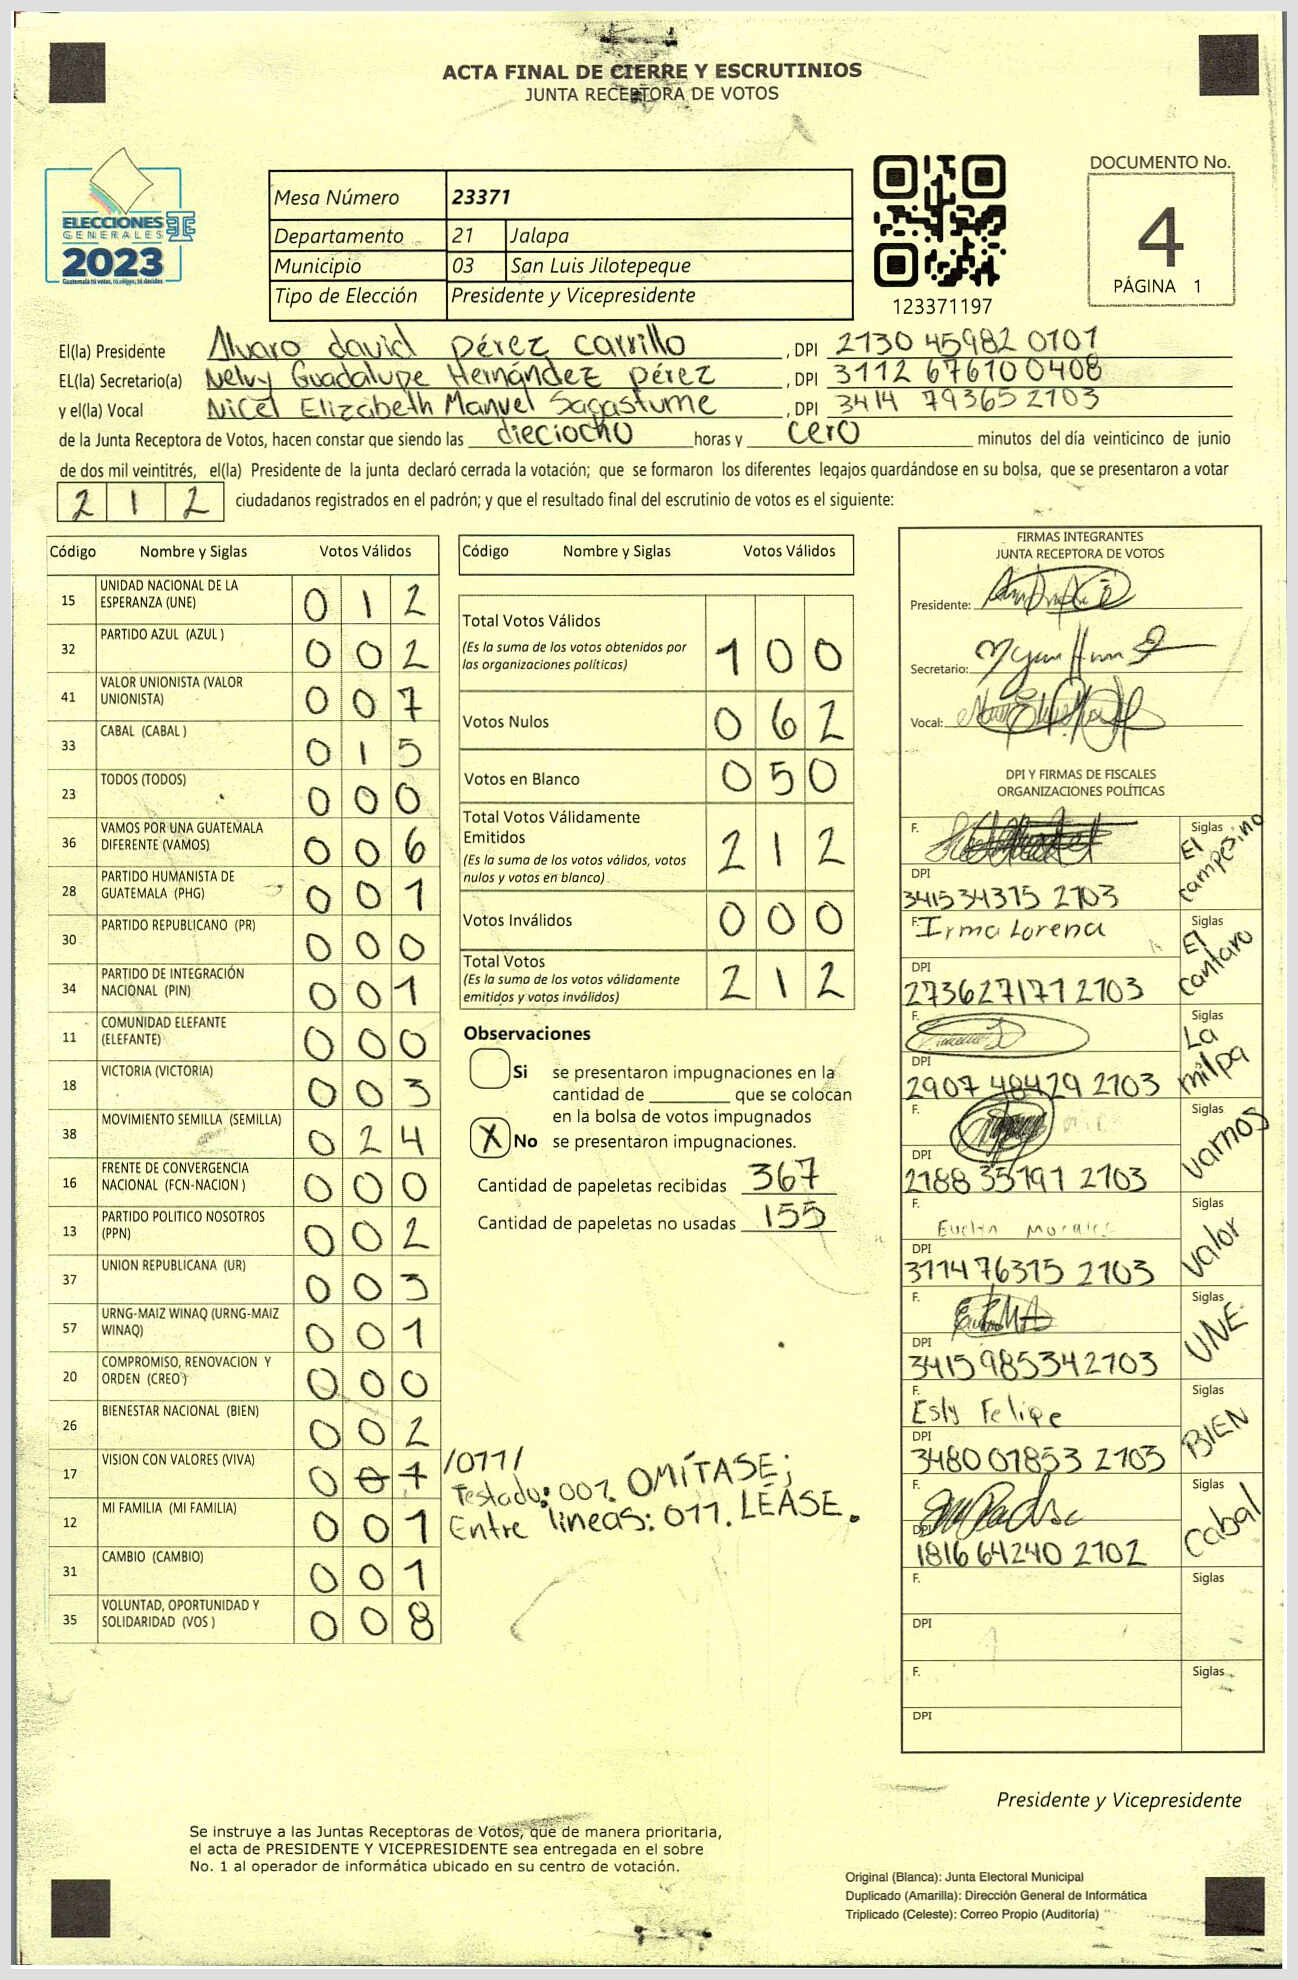 ACTA FINAL DE CIERRE Y ESCRUTINIOS
JUNTA RECEPTORA DE VOTOS
ELECCIONES
GENERALES
2023
Guatemala tú votas, tú eliges, tú decides
Mesa Número 23371
Departamento 21 Jalapa
Municipio 03 San Luis Jilotepeque
Tipo de Elección Presidente y Vicepresidente
123371197
DOCUMENTO No.
4
PÁGINA 1
El(la) Presidente Alvaro david pérez carrillo , DPI 2130 45982 0101
EL(la) Secretario(a) Nelvy Guadalupe Hernández pérez , DPI 3112 67610 0408
y el(la) Vocal Nicel Elizabeth Manuel Sagastume , DPI 3414 79365 2103
de la Junta Receptora de Votos, hacen constar que siendo las dieciocho horas y cero minutos del día veinticinco de junio
de dos mil veintitrés, el(la) Presidente de la junta declaró cerrada la votación; que se formaron los diferentes legajos guardándose en su bolsa, que se presentaron a votar
212 ciudadanos registrados en el padrón; y que el resultado final del escrutinio de votos es el siguiente:
Código Nombre y Siglas Votos Válidos
15 UNIDAD NACIONAL DE LA
ESPERANZA (UNE) 012
32 PARTIDO AZUL (AZUL ) 002
41 VALOR UNIONISTA (VALOR
UNIONISTA) 007
33 CABAL (CABAL ) 015
23 TODOS (TODOS) 000
36 VAMOS POR UNA GUATEMALA
DIFERENTE (VAMOS) 006
28 PARTIDO HUMANISTA DE
GUATEMALA (PHG) 001
30 PARTIDO REPUBLICANO (PR) 000
34 PARTIDO DE INTEGRACIÓN
NACIONAL (PIN) 001
11 COMUNIDAD ELEFANTE
(ELEFANTE) 000
18 VICTORIA (VICTORIA) 003
38 MOVIMIENTO SEMILLA (SEMILLA) 024
16 FRENTE DE CONVERGENCIA
NACIONAL (FCN-NACION ) 000
13 PARTIDO POLITICO NOSOTROS
(PPN) 002
37 UNION REPUBLICANA (UR) 003
57 URNG-MAIZ WINAQ (URNG-MAIZ
WINAQ) 001
20 COMPROMISO, RENOVACION Y
ORDEN (CREO ) 000
26 BIENESTAR NACIONAL (BIEN) 002
17 VISION CON VALORES (VIVA) 001 /011/
Testado: 001. OMÍTASE;
Entre líneas: 011. LÉASE.
12 MI FAMILIA (MI FAMILIA) 001
31 CAMBIO (CAMBIO) 001
35 VOLUNTAD, OPORTUNIDAD Y
SOLIDARIDAD (VOS ) 008
Código Nombre y Siglas Votos Válidos
Total Votos Válidos
(Es la suma de los votos obtenidos por
las organizaciones políticas) 100
Votos Nulos 062
Votos en Blanco 050
Total Votos Válidamente
Emitidos
(Es la suma de los votos válidos, votos
nulos y votos en blanco) 212
Votos Inválidos 000
Total Votos
(Es la suma de los votos válidamente
emitidos y votos inválidos) 212
Observaciones
Si se presentaron impugnaciones en la
cantidad de ________ que se colocan
en la bolsa de votos impugnados
X No se presentaron impugnaciones.
Cantidad de papeletas recibidas 367
Cantidad de papeletas no usadas 155
FIRMAS INTEGRANTES
JUNTA RECEPTORA DE VOTOS
Presidente:
Secretario:
Vocal:
DPI Y FIRMAS DE FISCALES
ORGANIZACIONES POLÍTICAS
F. Siglas El campesino
DPI
3415 34315 2103
F. Irma Lorena Siglas El cantaro
DPI
2736271712103
F. Siglas La milpa
DPI
2907 48429 2103
F. Siglas vamos
DPI
2188 35191 2103
F. Evelyn Morales Siglas valor
DPI
3114 76315 2103
F. Siglas UNE
DPI
3415985342103
F. Esly Felipe Siglas BIEN
DPI
3480 01853 2103
F. Siglas cabal
DPI
1816 64240 2102
F. Siglas
DPI
F. Siglas
DPI
Presidente y Vicepresidente
Se instruye a las Juntas Receptoras de Votos, que de manera prioritaria,
el acta de PRESIDENTE Y VICEPRESIDENTE sea entregada en el sobre
No. 1 al operador de informática ubicado en su centro de votación.
Original (Blanca): Junta Electoral Municipal
Duplicado (Amarilla): Dirección General de Informática
Triplicado (Celeste): Correo Propio (Auditoría)